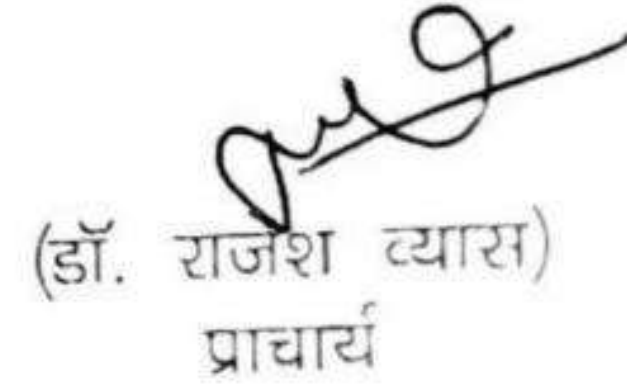 (डॉ. राजेश व्यास)
प्राचार्य